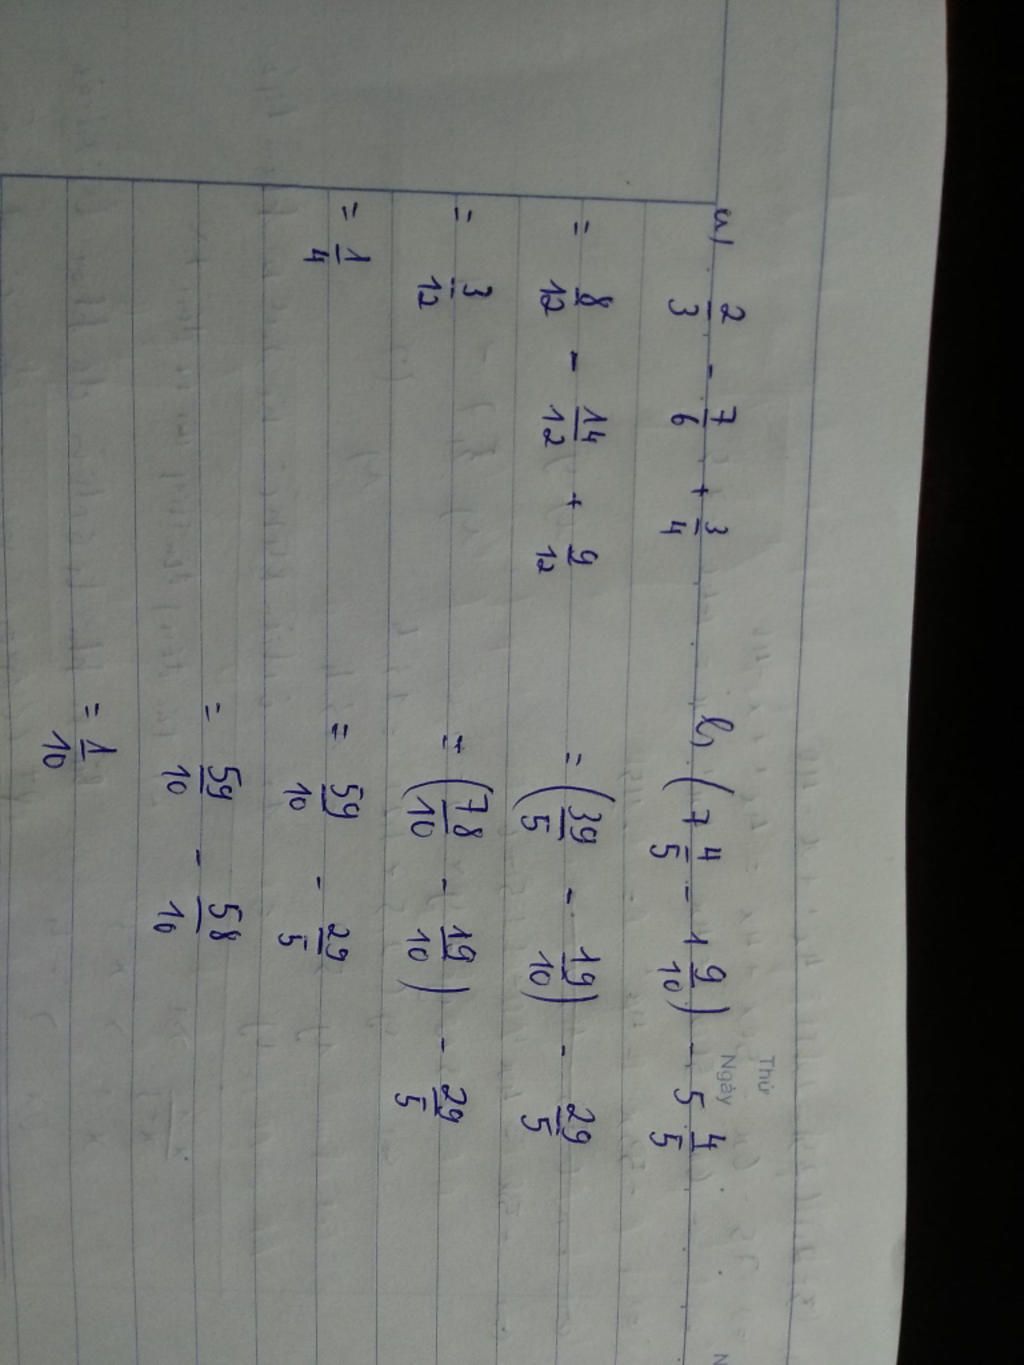 Thứ
Ngày
a) 2/3 - 7/6 + 3/4
= 8/12 - 14/12 + 9/12
= 3/12
= 1/4
b) (7 4/5 - 1 9/10) - 5 4/5
= (39/5 - 19/10) - 29/5
= (78/10 - 19/10) - 29/5
= 59/10 - 29/5
= 59/10 - 58/10
= 1/10